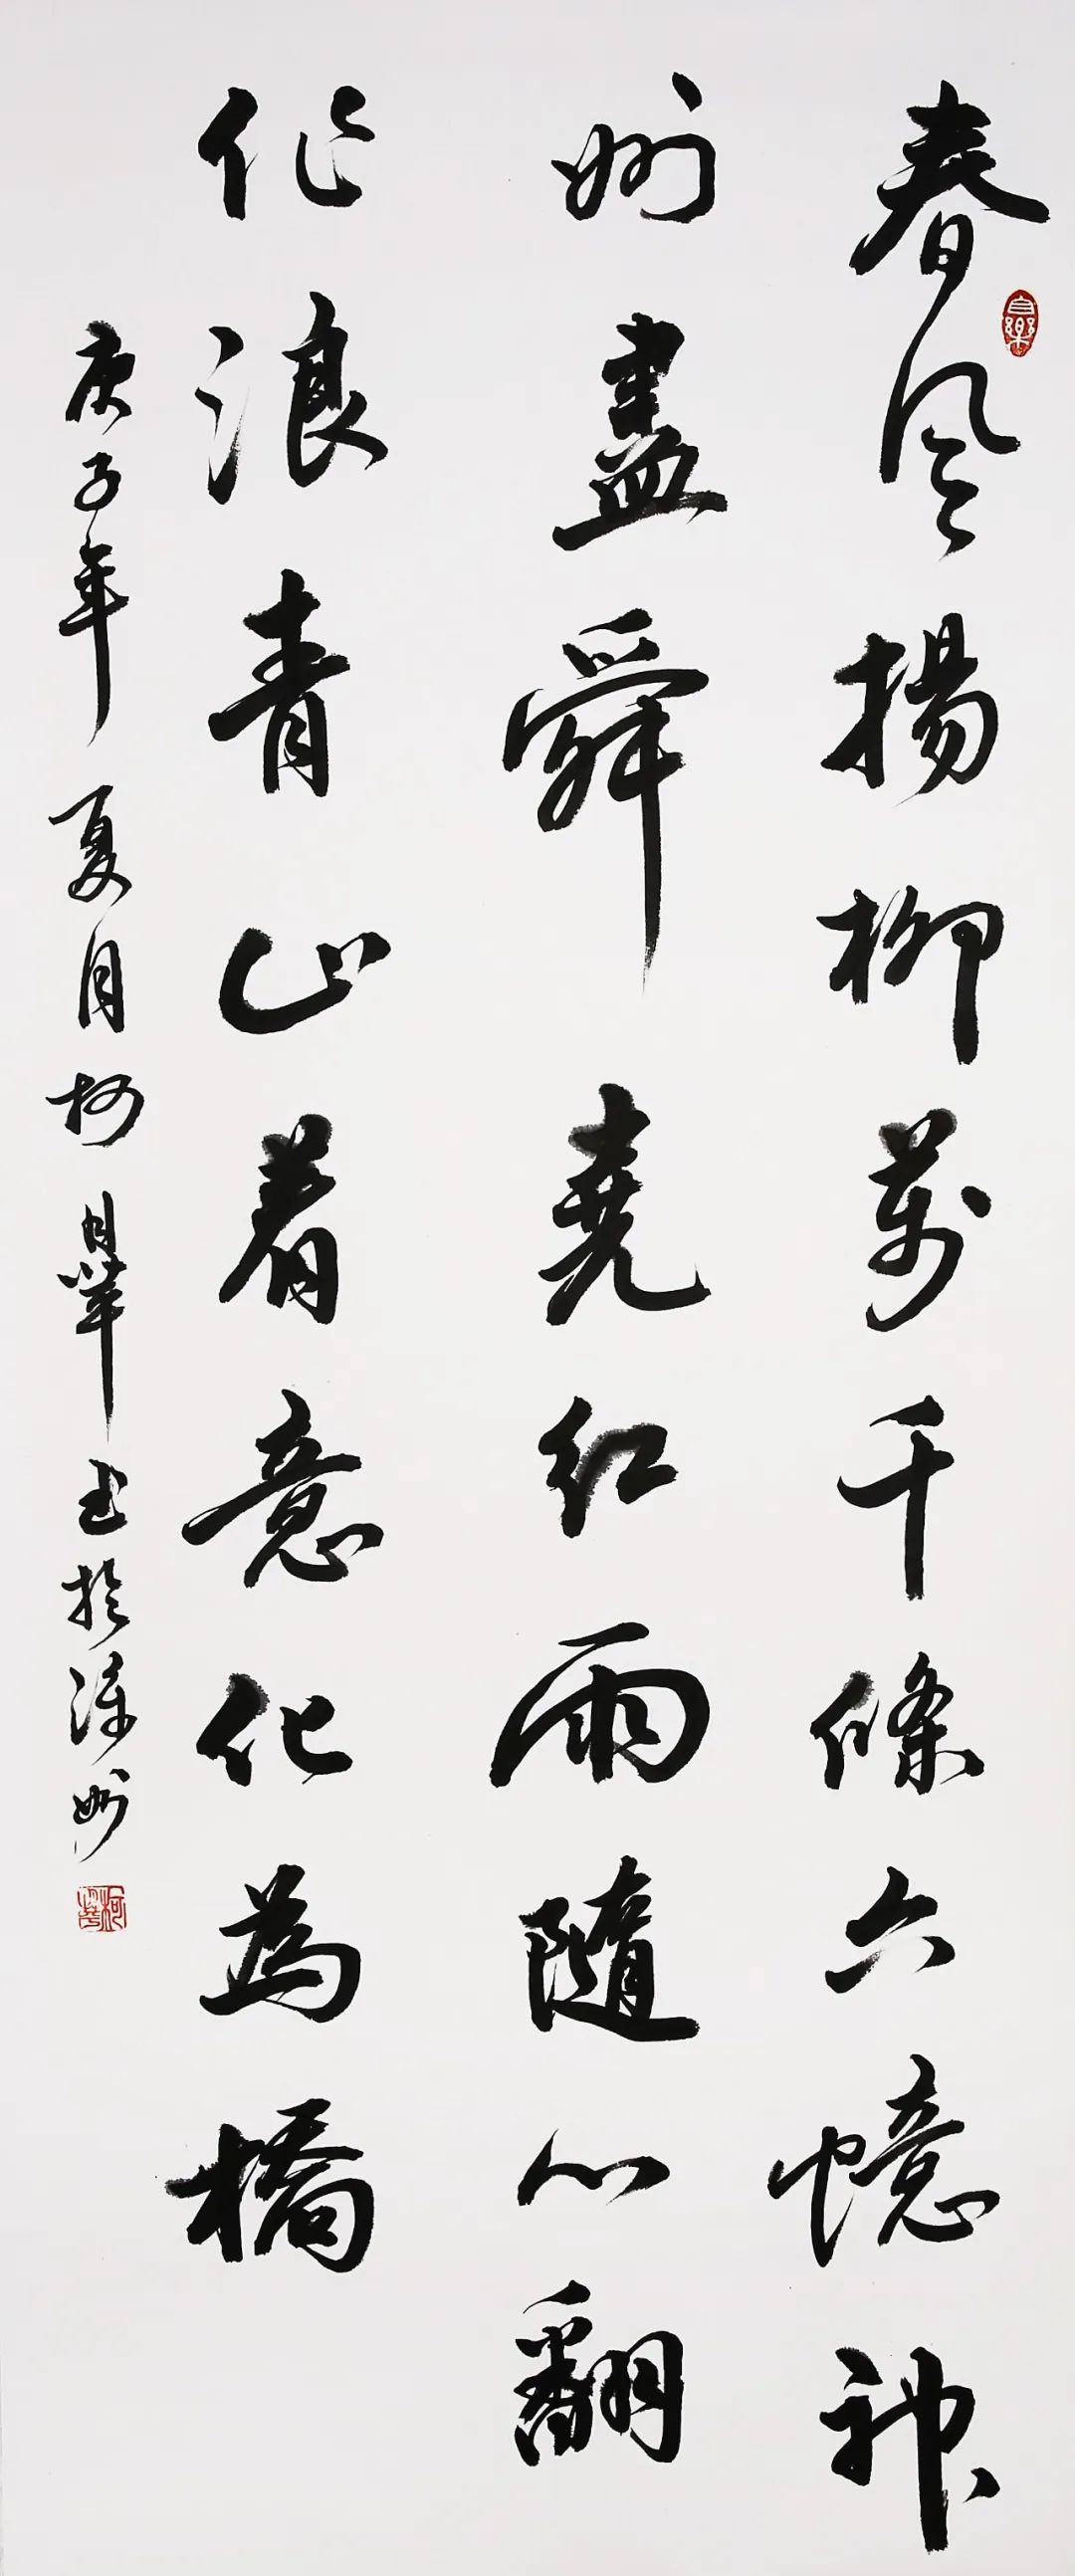 春風揚柳萬千條六憶神
州盡舜堯紅雨隨心翻
作浪青山着意化為橋
庚子年夏月柯書於州